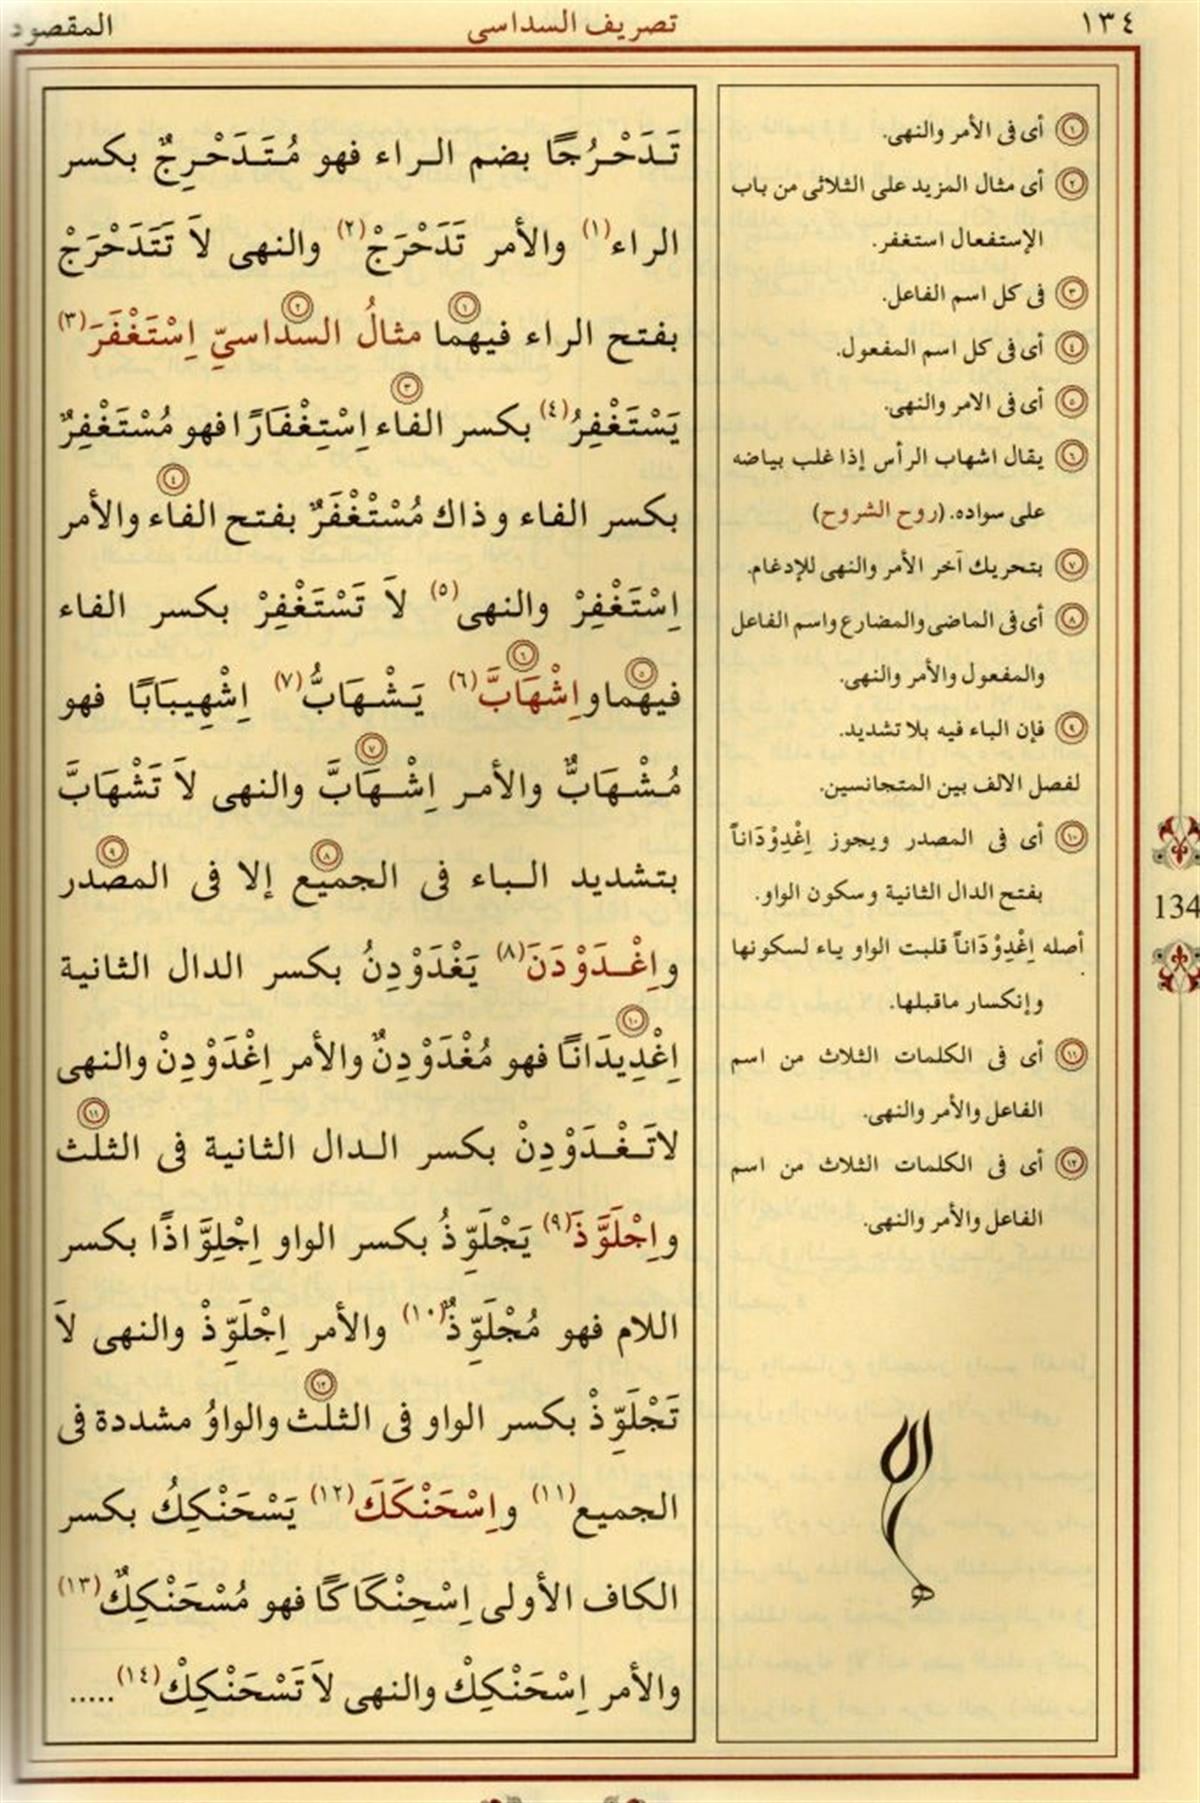 ١٣٤
تصريف السداسى
المقصود
تَدَحْرُجًا بضم الراء فهو مُتَدَحْرِجٌ بكسر
الراء(١) والأمر تَدَحْرَجْ(٢) والنهى لاَ تَتَدَحْرَجْ
بفتح الراء فيهما ١ مثالُ السداسىِّ ٢ اِسْتَغْفَرَ(٣)
يَسْتَغْفِرُ(٤) بكسر الفاء ٣ اِسْتِغْفَارًا فهو مُسْتَغْفِرٌ
بكسر الفاء وذاك مُسْتَغْفَرٌ بفتح الفاء ٤ والأمر
اِسْتَغْفِرْ والنهى(٥) لاَ تَسْتَغْفِرْ بكسر الفاء
فيهما ٥ واِشْهَابَّ ٦ (٦) يَشْهَابُّ(٧) اِشْهِيبَابًا فهو
مُشْهَابٌّ والأمر اِشْهَابَّ ٧ والنهى لاَ تَشْهَابَّ
بتشديد الباء فى الجميع ٨ إلا فى المصدر ٩
واِغْدَوْدَنَ(٨) يَغْدَوْدِنُ بكسر الدال الثانية
اِغْدِيدَانًا ١٠ فهو مُغْدَوْدِنٌ والأمر اِغْدَوْدِنْ والنهى
لاتَغْدَوْدِنْ بكسر الدال الثانية فى الثلث ١١
واِجْلَوَّذَ(٩) يَجْلَوِّذُ بكسر الواو اِجْلِوَّاذًا بكسر
اللام فهو مُجْلَوِّذٌ(١٠) والأمر اِجْلَوِّذْ والنهى لاَ
تَجْلَوِّذْ بكسر الواو فى الثلث ١٢ والواوُ مشددة فى
الجميع(١١) واِسْحَنْكَكَ(١٢) يَسْحَنْكِكُ بكسر
الكاف الأولى اِسْحِنْكَاكًا فهو مُسْحَنْكِكٌ(١٣)
والأمر اِسْحَنْكِكْ والنهى لاَ تَسْحَنْكِكْ(١٤).....
١ أى فى الأمر والنهى.
٢ أى مثال المزيد على الثلاثى من باب
الإستفعال استغفر.
٣ فى كل اسم الفاعل.
٤ أى فى كل اسم المفعول.
٥ أى فى الامر والنهى.
٦ يقال اشهاب الرأس إذا غلب بياضه
على سواده. (روح الشروح)
٧ بتحريك آخر الأمر والنهى للإدغام.
٨ أى فى الماضى والمضارع واسم الفاعل
والمفعول والأمر والنهى.
٩ فإن الباء فيه بلا تشديد.
لفصل الالف بين المتجانسين.
١٠ أى فى المصدر ويجوز اِغْدِوْدَاناً
بفتح الدال الثانية وسكون الواو.
أصله اِغْدِوْدَاناً قلبت الواو ياء لسكونها
وإنكسار ماقبلها.
١١ أى فى الكلمات الثلاث من اسم
الفاعل والأمر والنهى.
١٢ أى فى الكلمات الثلاث من اسم
الفاعل والأمر والنهى.
134